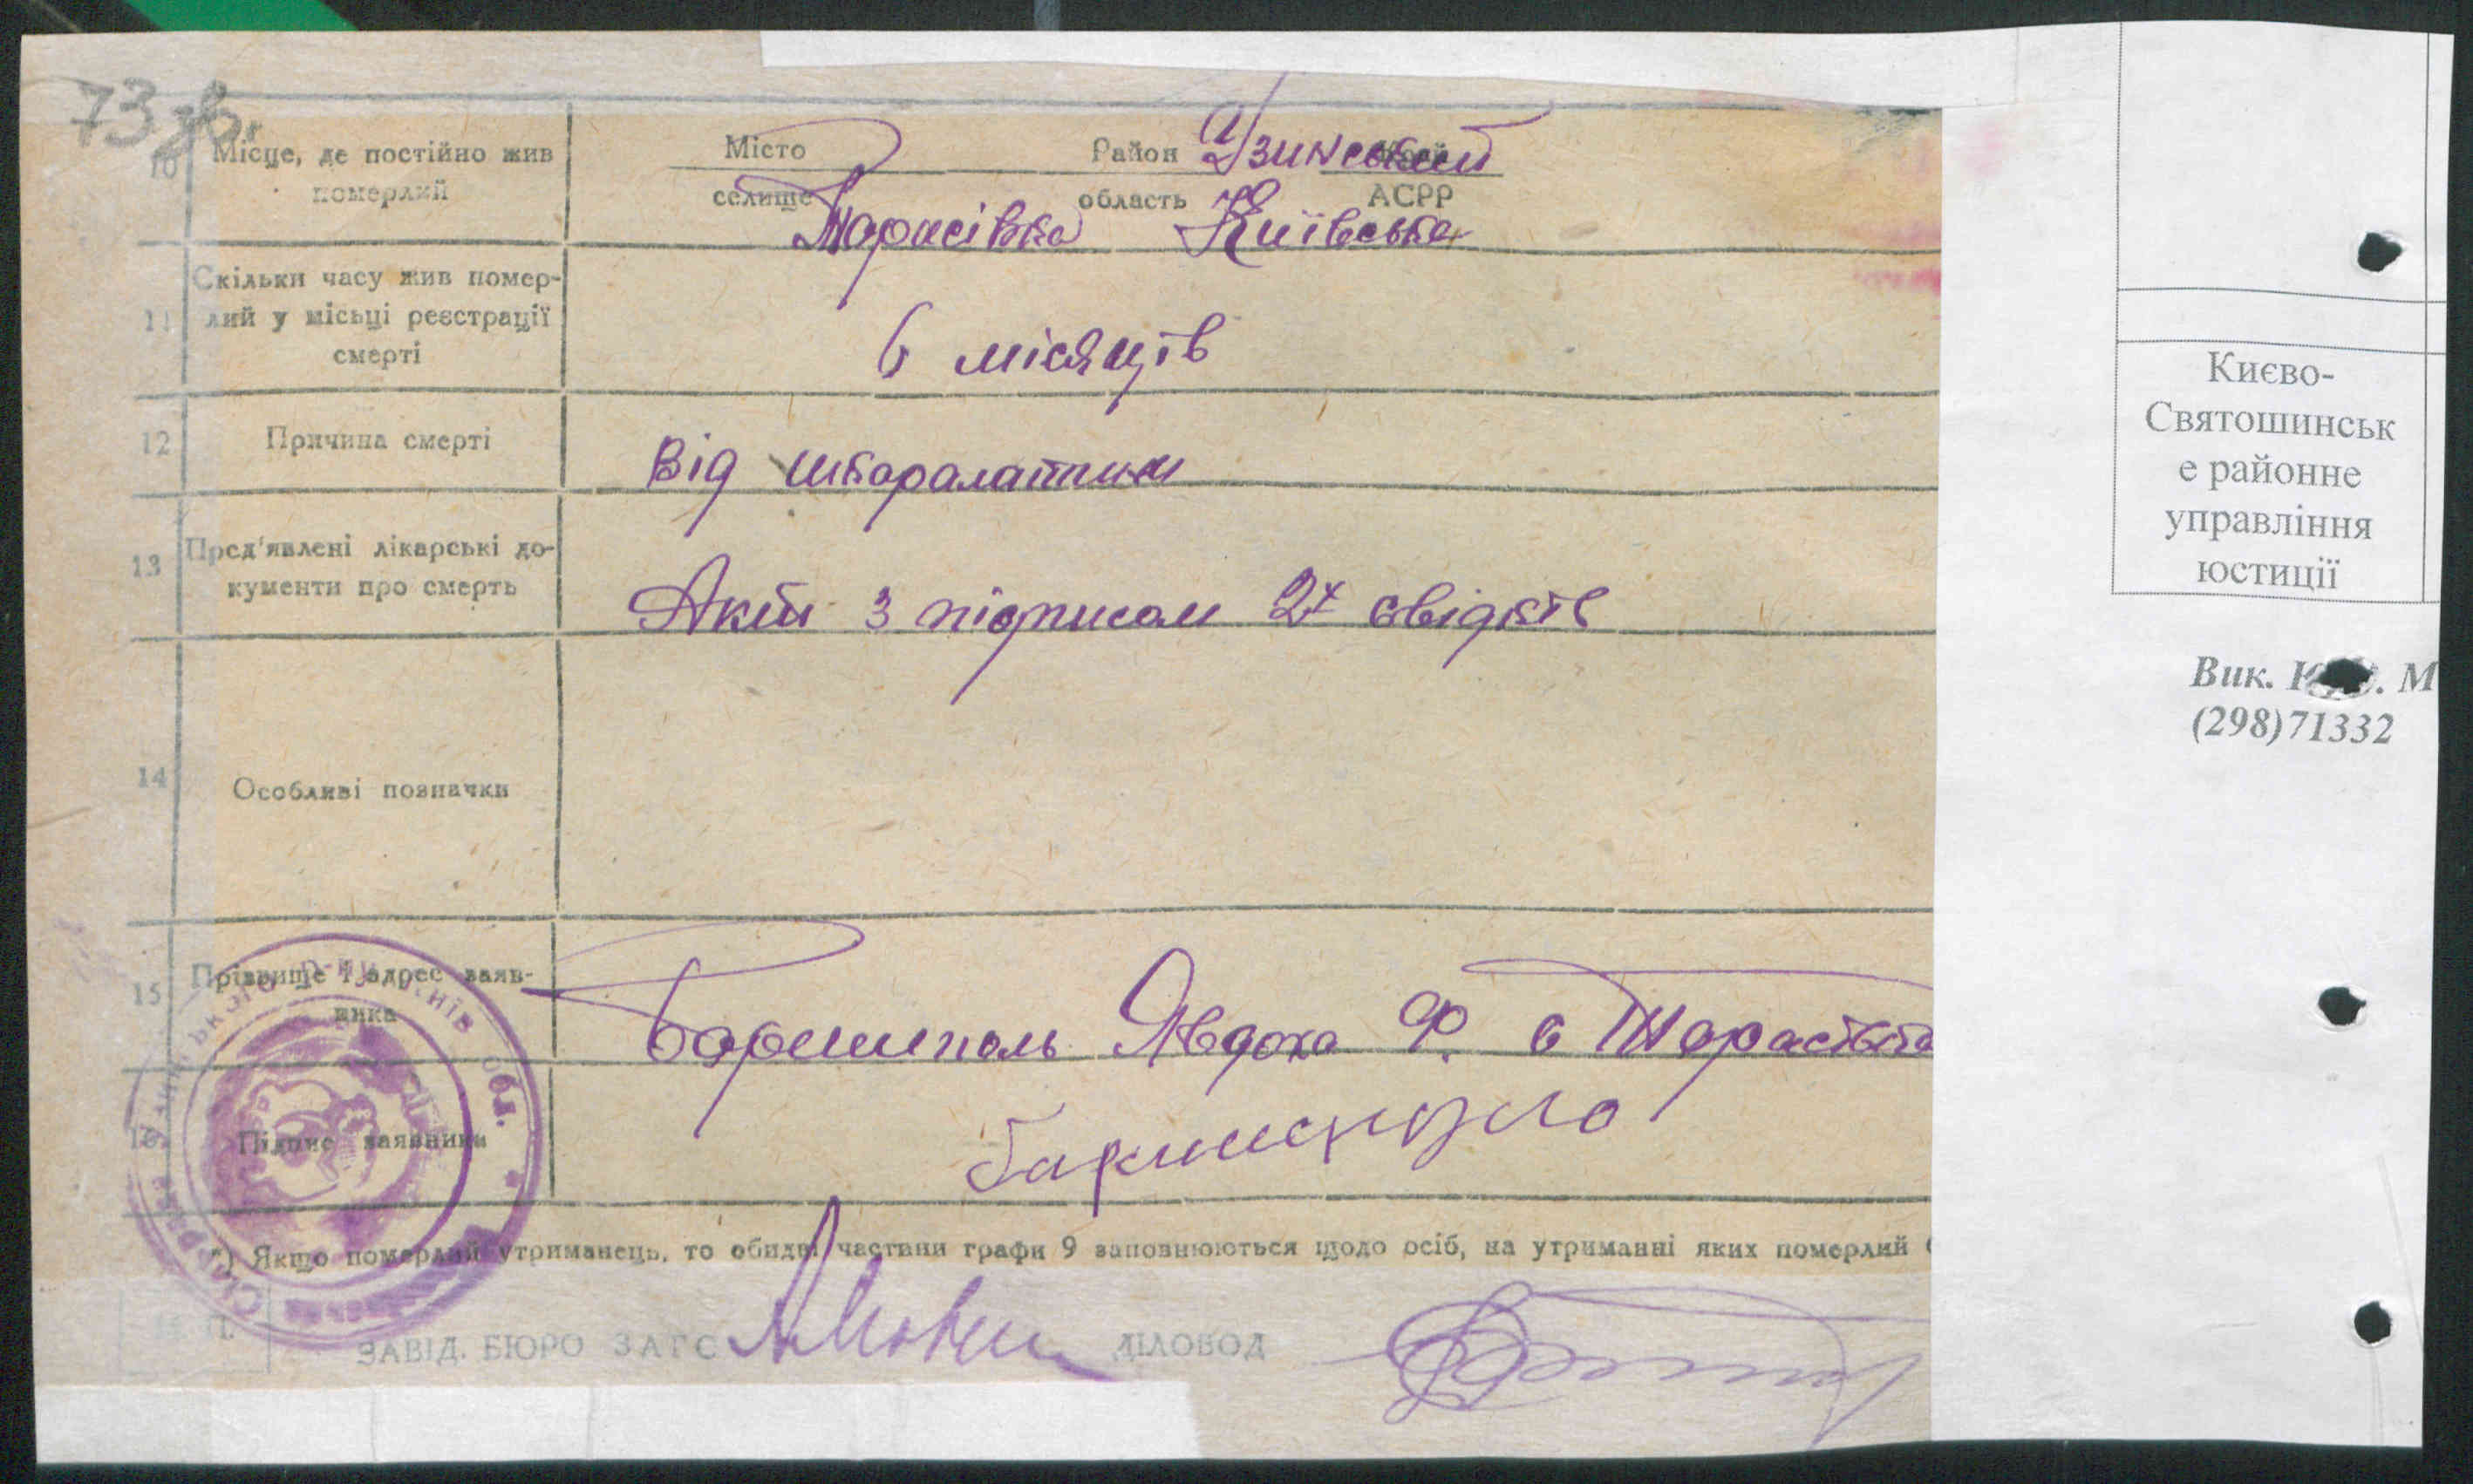 73 зв.
10 Місце, де постійно жив померлий
Місто
селище Тарасівка
Район Узинський
область Київська АСРР
11 Скільки часу жив помер-
лий у місьці реєстрації
смерті
6 місяців
12 Причина смерті
від шкаралатини
13 Пред'явлені лікарські до-
кументи про смерть
Акт з підписом 2х свідків
14 Особливі позначки
15 Прізвище і адрес заяв-
ника
Боришполь Явдоха Ф. с Тарасівка
16 Підпис заявника
*) Якщо померлий утриманець, то обидві частини графи 9 заповнюються щодо осіб, на утриманні яких померлий
М. П.
ЗАВІД. БЮРО ЗАГС
ДІЛОВОД
р-ну Київ обл.
Києво-
Святошинськ
е районне
управління
юстиції
Вик. М
(298)71332